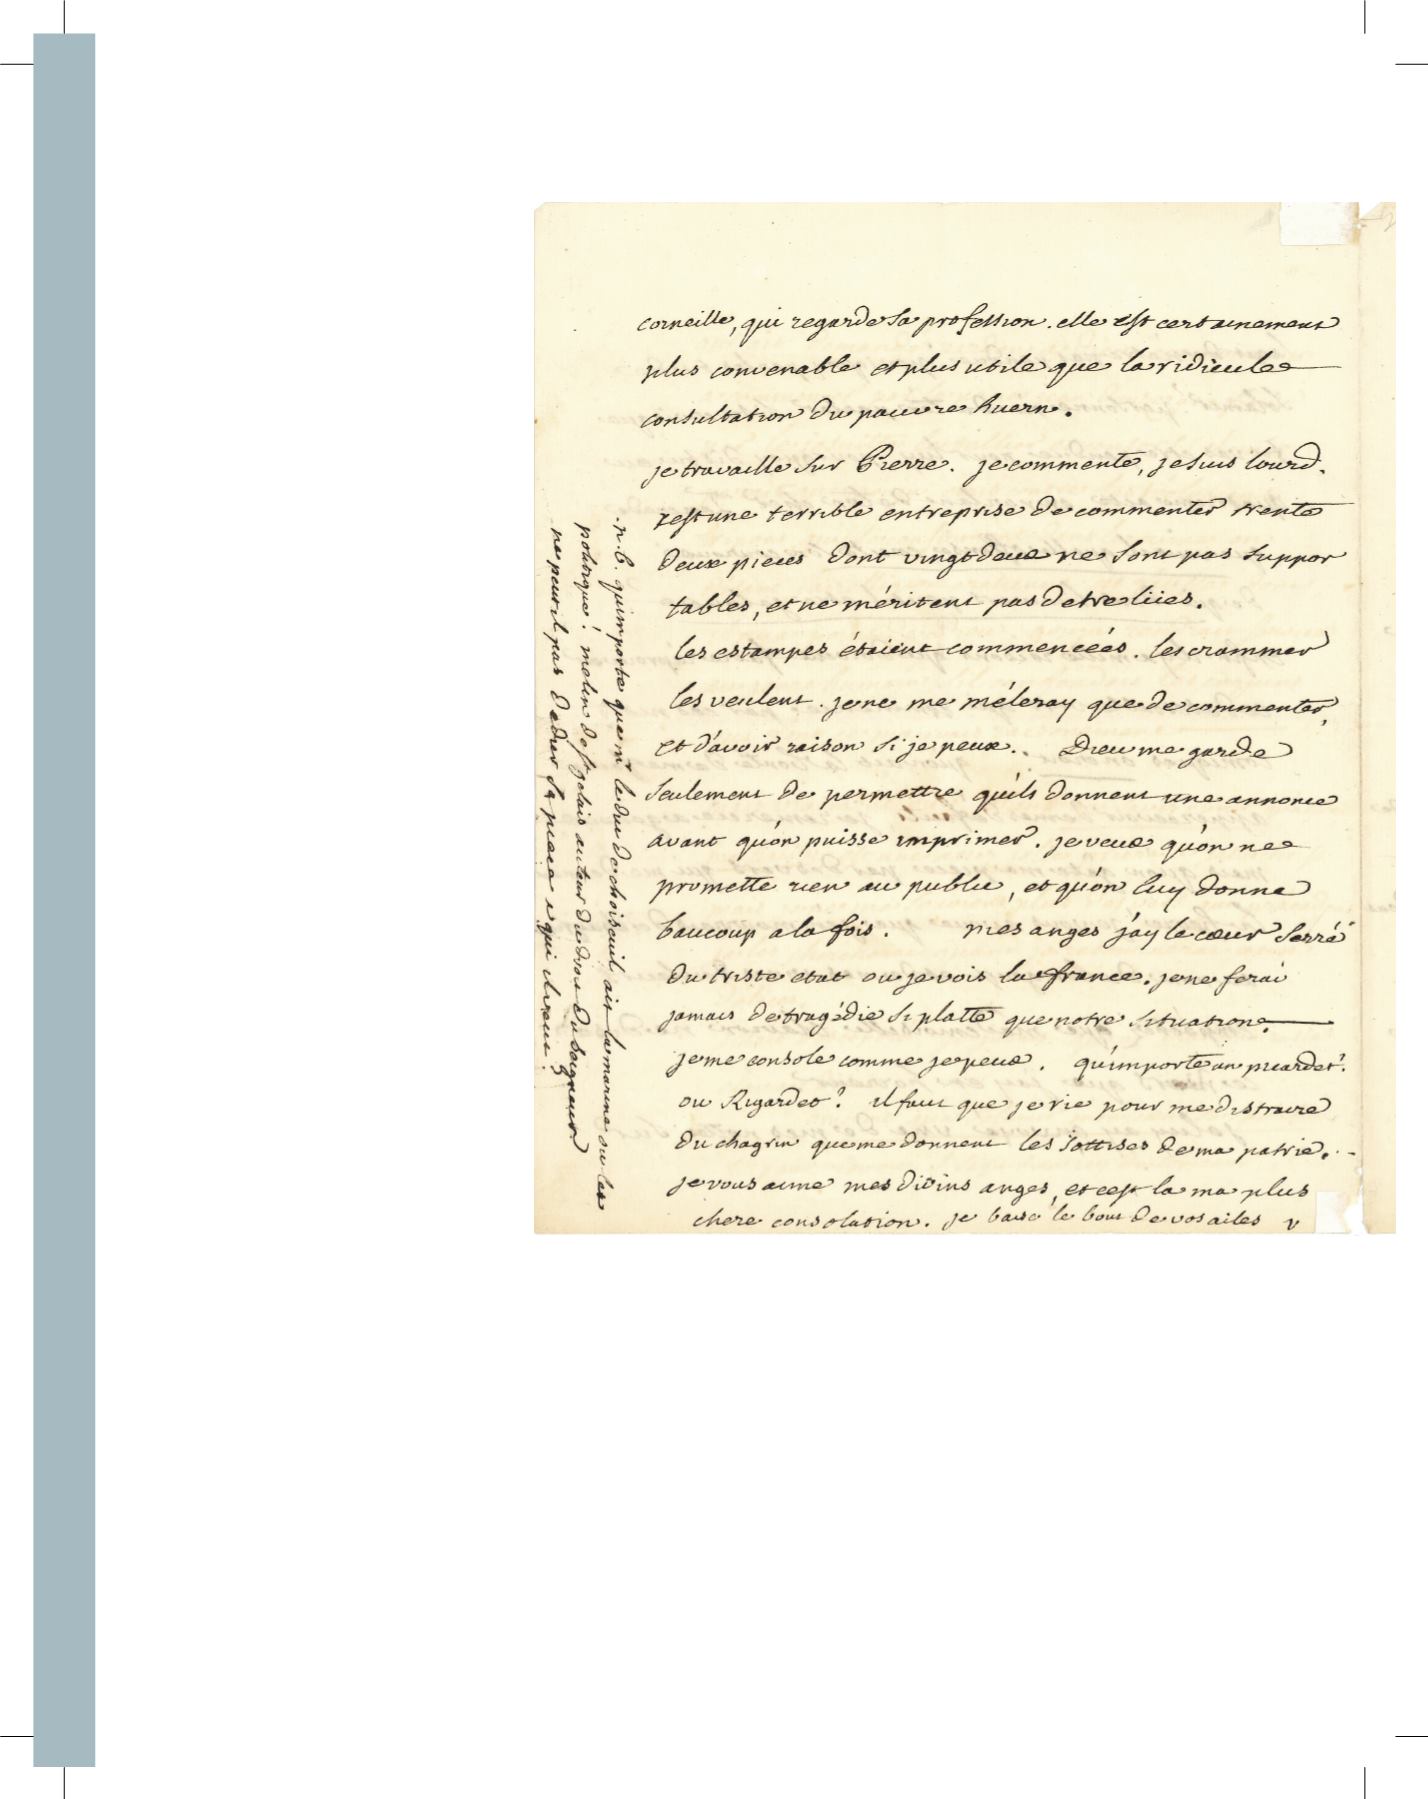 corneille, qui regarde sa profession. elle est certainement
plus convenable et plus utile que la ridicule
consultation du pauvre huern.
je travaille sur Pierre. je commente, je suis lourd.
c'est une terrible entreprise de commenter trente
deux pieces dont vingt deux ne sont pas suppor
tables, et ne méritent pas detre lües.
les estampes étaient commencées. les crammer
les veulent. je ne me méleray que de commenter,
et d'avoir raison si je peux. Dieu me garde
seulement de permettre qu'ils donnent une annonce
avant qu'on puisse imprimer. je veux qu'on ne
promette rien au public, et qu'on luy donne
baucoup a la fois. mes anges j'ay le cœur serré
du triste etat ou je vois la france. je ne ferai
jamais de tragédie si platte que notre situation.
je me console comme je peux. qu'importe un picardet?
ou Rigardet? il faut que je rie pour me distraire
du chagrin que me donnent les sottises de ma patrie.
je vous aime mes divins anges, et c'est la ma plus
chere consolation. je baise le bout de vos ailes v
n. b. qu'importe que mr le duc de choiseuil ait la marine ou la
politique! melin de st gelais auteur du droit du seigneur
ne peut il pas dedier sa piece a qui il veut?